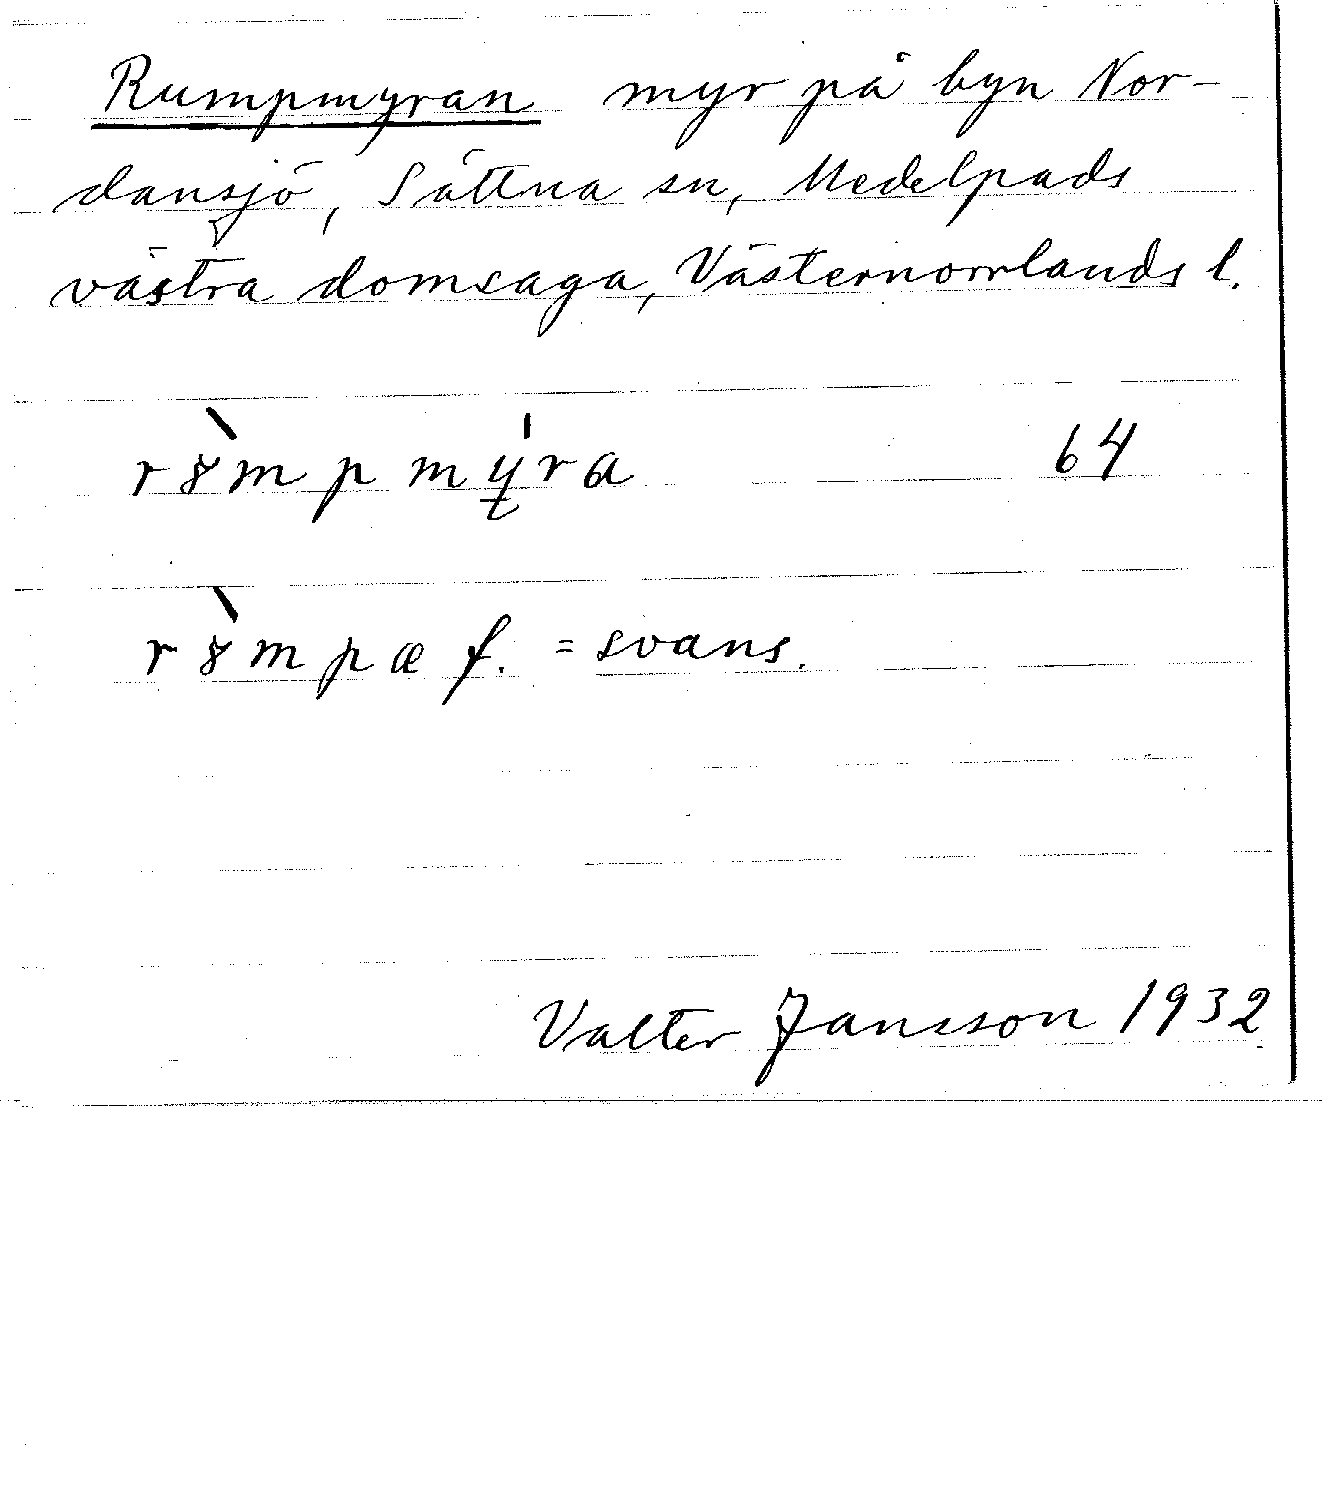 Rumpmyran myr på byn Nor-
dansjö, Sättna sn, Medelpads
västra domsaga, Västernorrlands l.
r8̀mpmýra 64
r8̀mpæ f. = svans.
Valter Jansson 1932